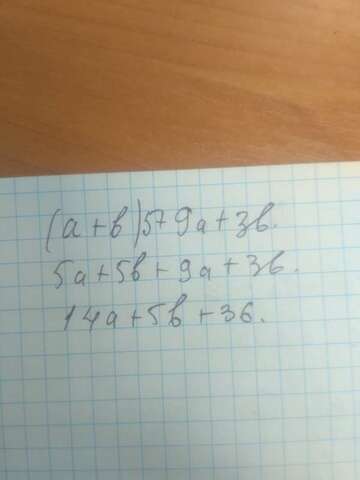 (a+b)5+9a+3b.
5a+5b+9a+3b.
14a+5b+3b.